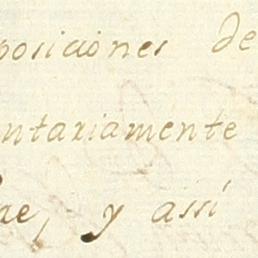 posiciones de
ntariamente
ae, y assi